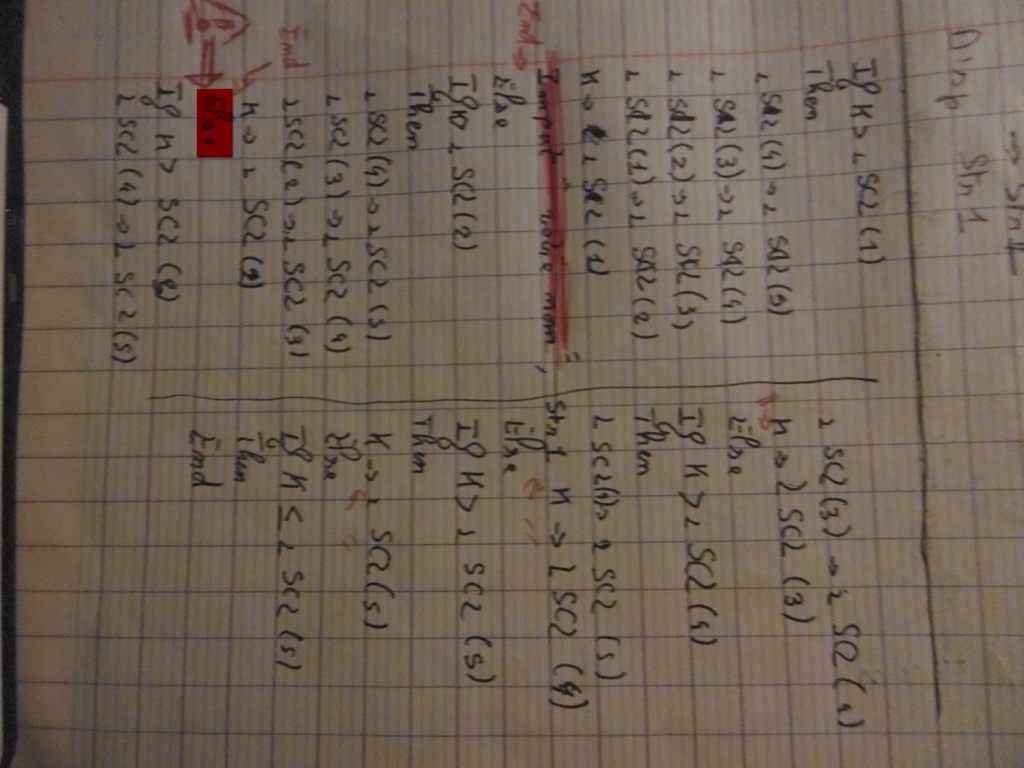 → Str1
Disp Str1
If K > LSC2(1)
Then
LSC2(4)→LSC2(5)
LSC2(3)→LSC2(4)
LSC2(2)→LSC2(3)
LSC2(1)→LSC2(2)
K→LSC2(1)
Input "votre nom", Str1
End →
Else
If K>LSC2(2)
Then
LSC2(4)→LSC2(5)
LSC2(3)→LSC2(4)
LSC2(2)→LSC2(3)
End
K→LSC2(2)
Else
If K > SC2(3)
LSC2(4)→LSC2(5)
LSC2(3)→LSC2(4)
K→LSC2(3)
Else
If K > LSC2(4)
Then
LSC2(4)→LSC2(5)
K→LSC2(4)
Else
If K > LSC2(5)
Then
K→LSC2(5)
Else
If K ≤ LSC2(5)
Then
End